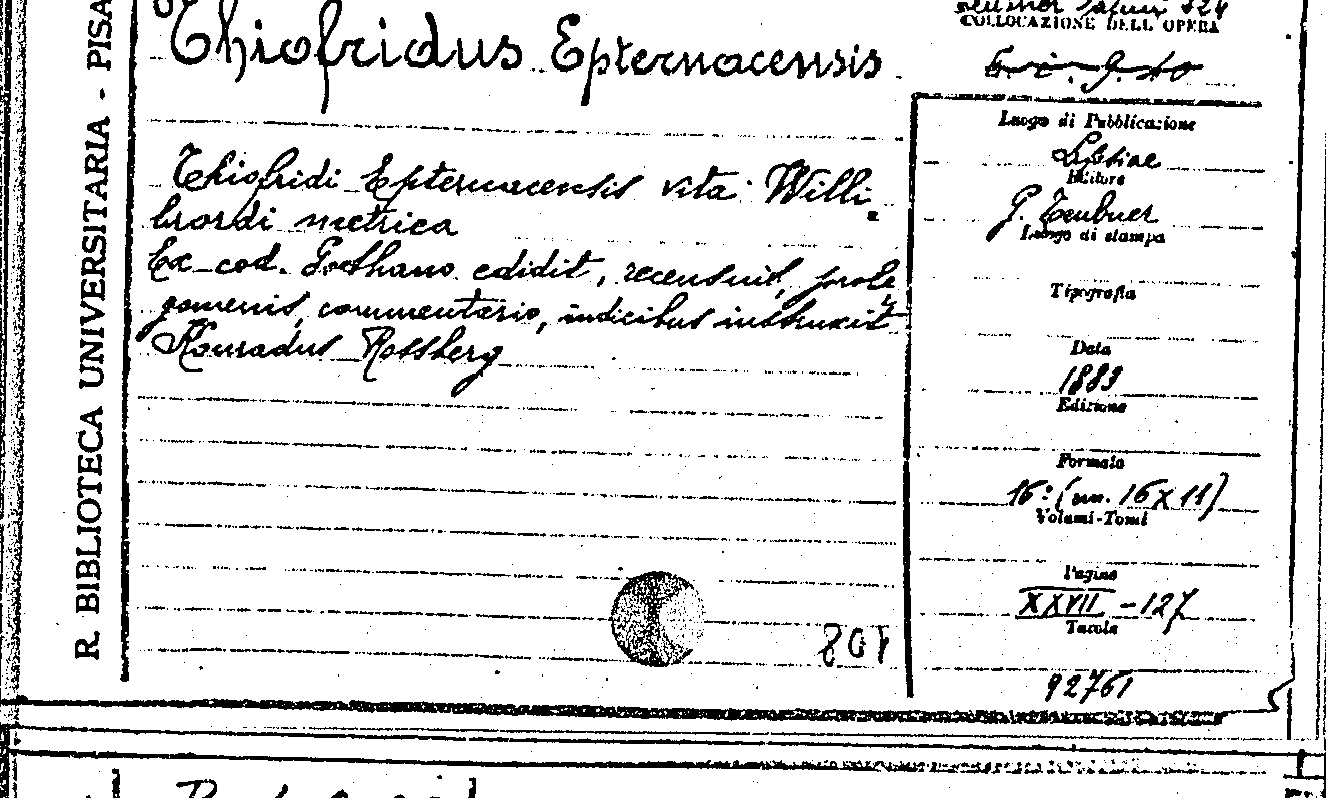 R. BIBLIOTECA UNIVERSITARIA - PISA
Thiofridus Epternacensis
Thiofridi Epternacensis vita Willi
brordi metrica
Ex cod. Gothano edidit, recensuit, prole
gomenis, commentario, indicibus instruxit
Konradus Rossberg
801
COLLOCAZIONE DELL'OPERA
Luogo di Pubblicazione
Lipsiae
Editore
G. Teubner
Luogo di stampa
Tipografia
Data
1883
Edizione
Formato
16° (cm. 16 x 11)
Volumi-Tomi
Pagine
XXVII - 127
Tavole
92761